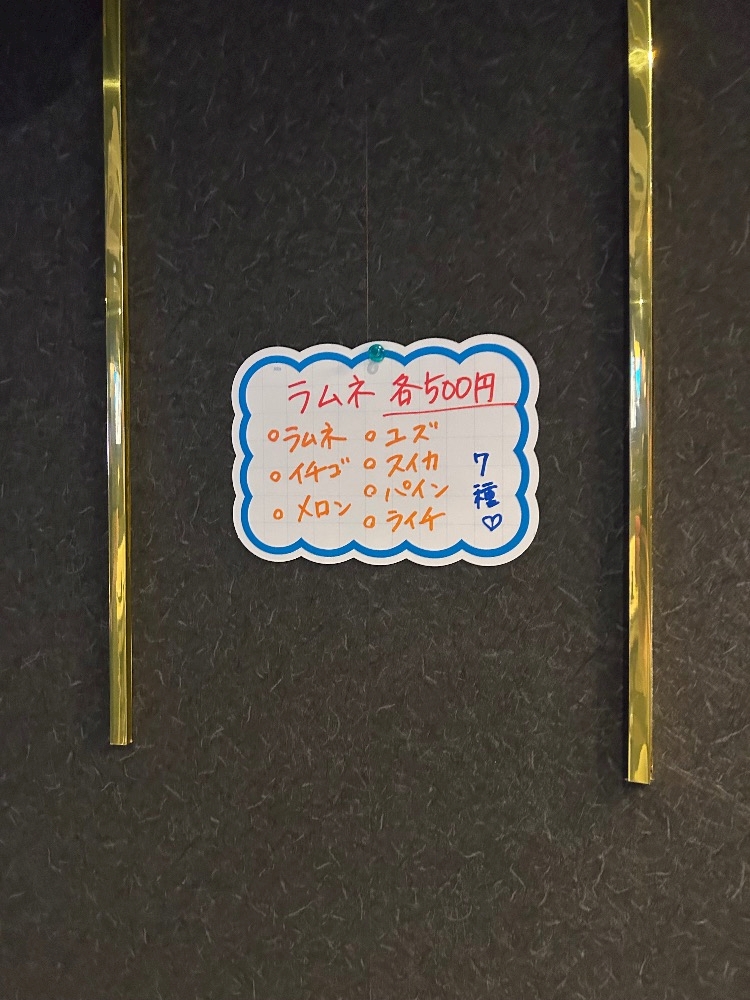 ラムネ 各500円
○ラムネ
○イチゴ
○メロン
○ユズ
○スイカ
○パイン
○ライチ
7種♡